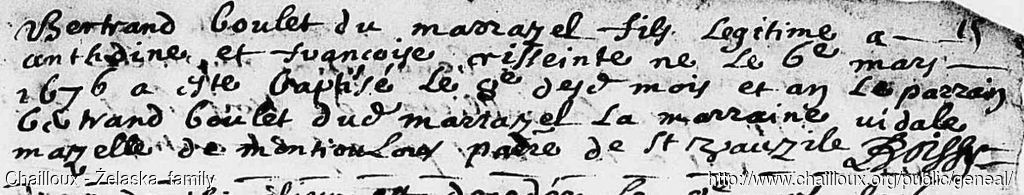 Bertrand boulet du marrazel fils legitime a
anthoine et francoise crisseinte ne le 6e mars
1676 a este baptisé le 8e desd mois et an le parrain
bertrand boulet dud marrazel la marraine vidale
mazelle de de St Bauzile
Chailloux - Zelaska family
http://www.chailloux.org/public/geneal/